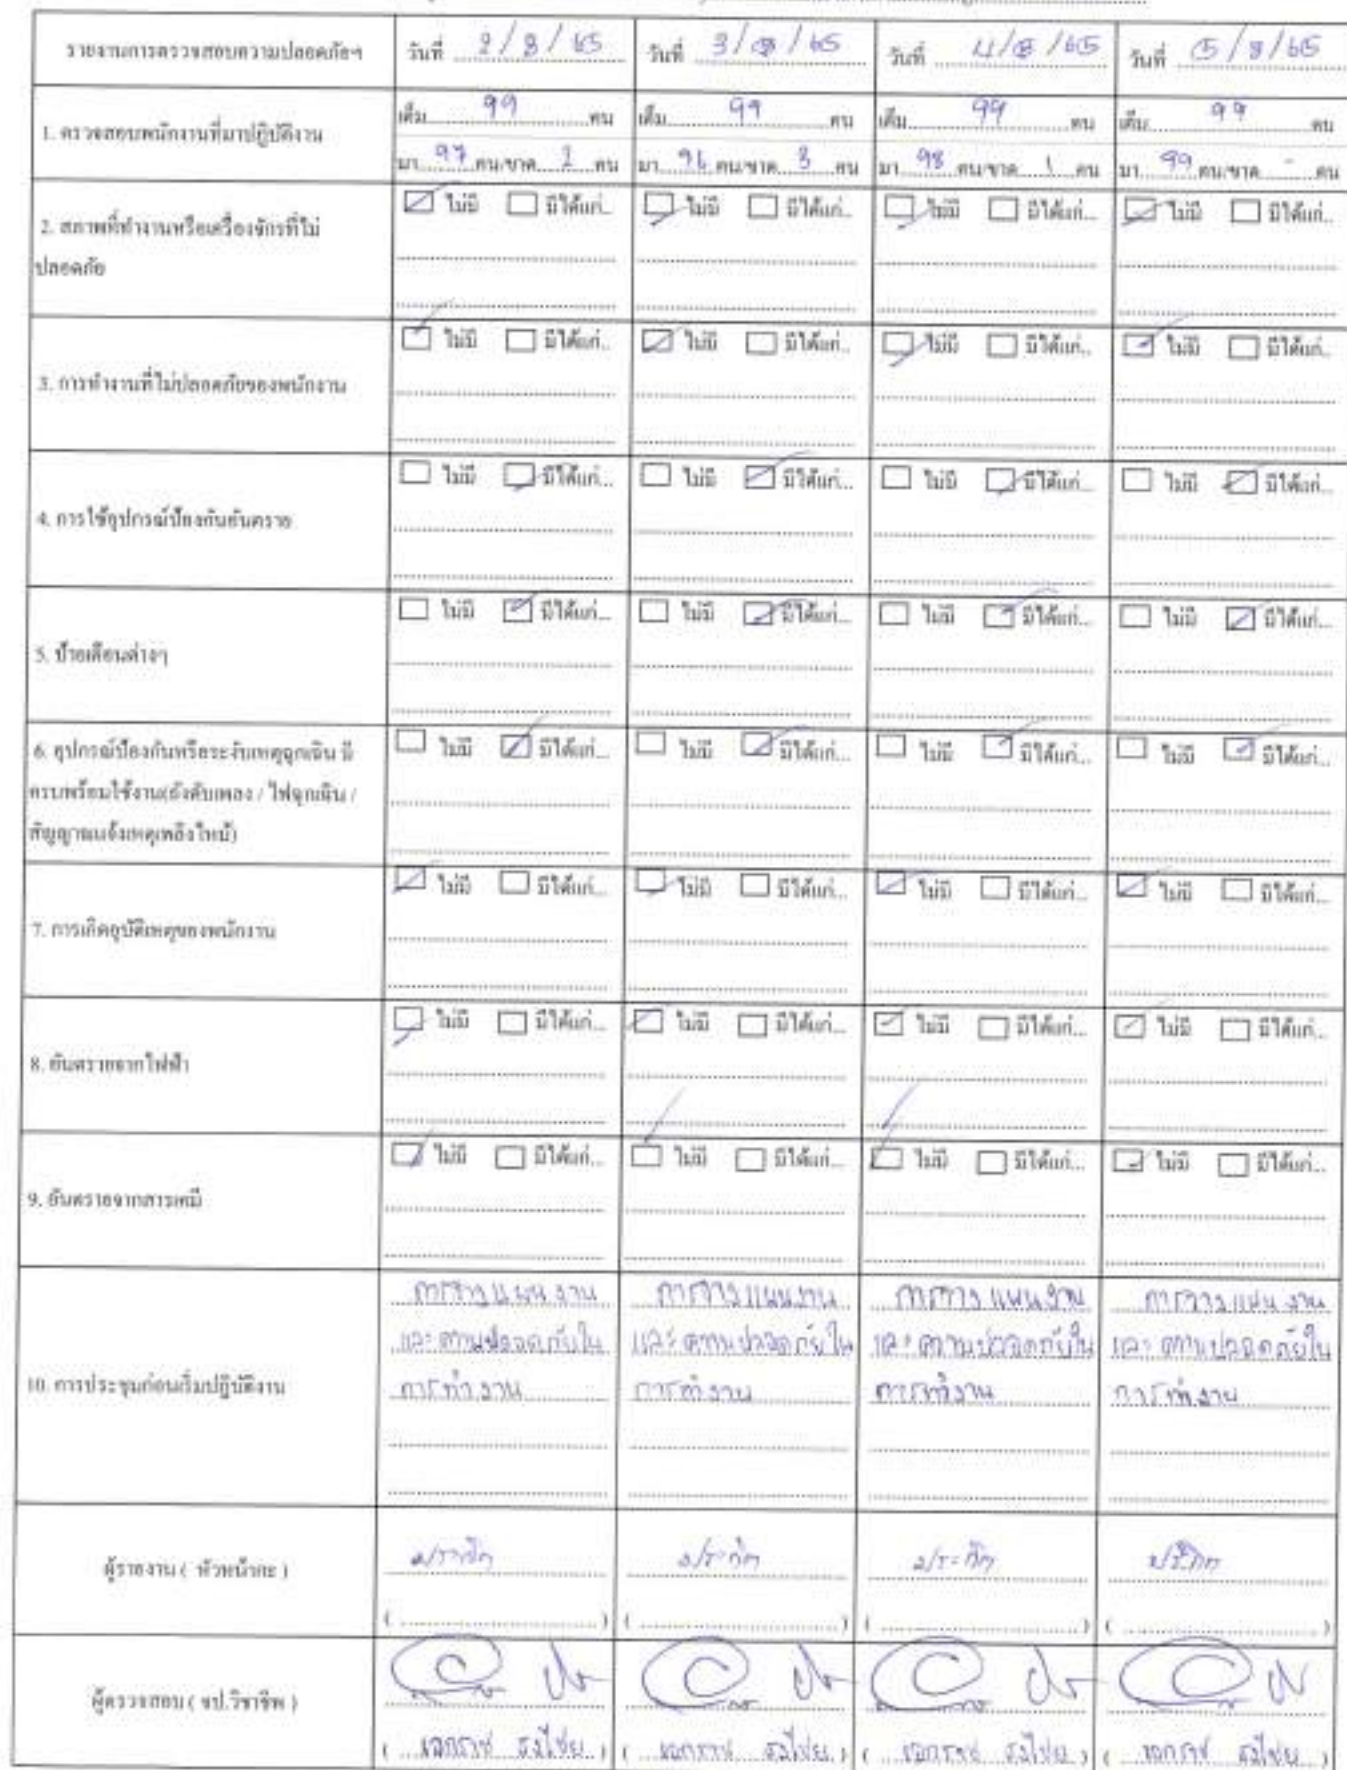 รายงานการตรวจสอบความปลอดภัยฯ วันที่ 2/8/65 วันที่ 3/8/65 วันที่ 4/8/65 วันที่ 5/8/65
1. ตรวจสอบพนักงานที่มาปฏิบัติงาน
เต็ม 99 คน เต็ม 99 คน เต็ม 99 คน เต็ม 99 คน
มา 97 คน/ขาด 2 คน มา 96 คน/ขาด 3 คน มา 98 คน/ขาด 1 คน มา 99 คน/ขาด - คน
2. สภาพที่ทำงานหรือเครื่องจักรที่ไม่
ปลอดภัย
ไม่มี มีได้แก่... ไม่มี มีได้แก่... ไม่มี มีได้แก่... ไม่มี มีได้แก่...
3. การทำงานที่ไม่ปลอดภัยของพนักงาน
ไม่มี มีได้แก่... ไม่มี มีได้แก่... ไม่มี มีได้แก่... ไม่มี มีได้แก่...
4. การใช้อุปกรณ์ป้องกันอันตราย
ไม่มี มีได้แก่... ไม่มี มีได้แก่... ไม่มี มีได้แก่... ไม่มี มีได้แก่...
5. ป้ายเตือนต่างๆ
ไม่มี มีได้แก่... ไม่มี มีได้แก่... ไม่มี มีได้แก่... ไม่มี มีได้แก่...
6. อุปกรณ์ป้องกันหรือระงับเหตุฉุกเฉิน มี
ครบพร้อมใช้งาน(ถังดับเพลง / ไฟฉุกเฉิน /
สัญญาณแจ้งเหตุเพลิงไหม้)
ไม่มี มีได้แก่... ไม่มี มีได้แก่... ไม่มี มีได้แก่... ไม่มี มีได้แก่...
7. การเกิดอุบัติเหตุของพนักงาน
ไม่มี มีได้แก่... ไม่มี มีได้แก่... ไม่มี มีได้แก่... ไม่มี มีได้แก่...
8. อันตรายจากไฟฟ้า
ไม่มี มีได้แก่... ไม่มี มีได้แก่... ไม่มี มีได้แก่... ไม่มี มีได้แก่...
9. อันตรายจากสารเคมี
ไม่มี มีได้แก่... ไม่มี มีได้แก่... ไม่มี มีได้แก่... ไม่มี มีได้แก่...
10. การประชุมก่อนเริ่มปฏิบัติงาน
การวางแผนงาน การวางแผนงาน การวางแผนงาน การวางแผนงาน
และความปลอดภัยใน และความปลอดภัยใน และความปลอดภัยใน และความปลอดภัยใน
การทำงาน การทำงาน การทำงาน การทำงาน
ผู้รายงาน ( หัวหน้าคะ )
ผู้ตรวจสอบ ( จป.วิชาชีพ )